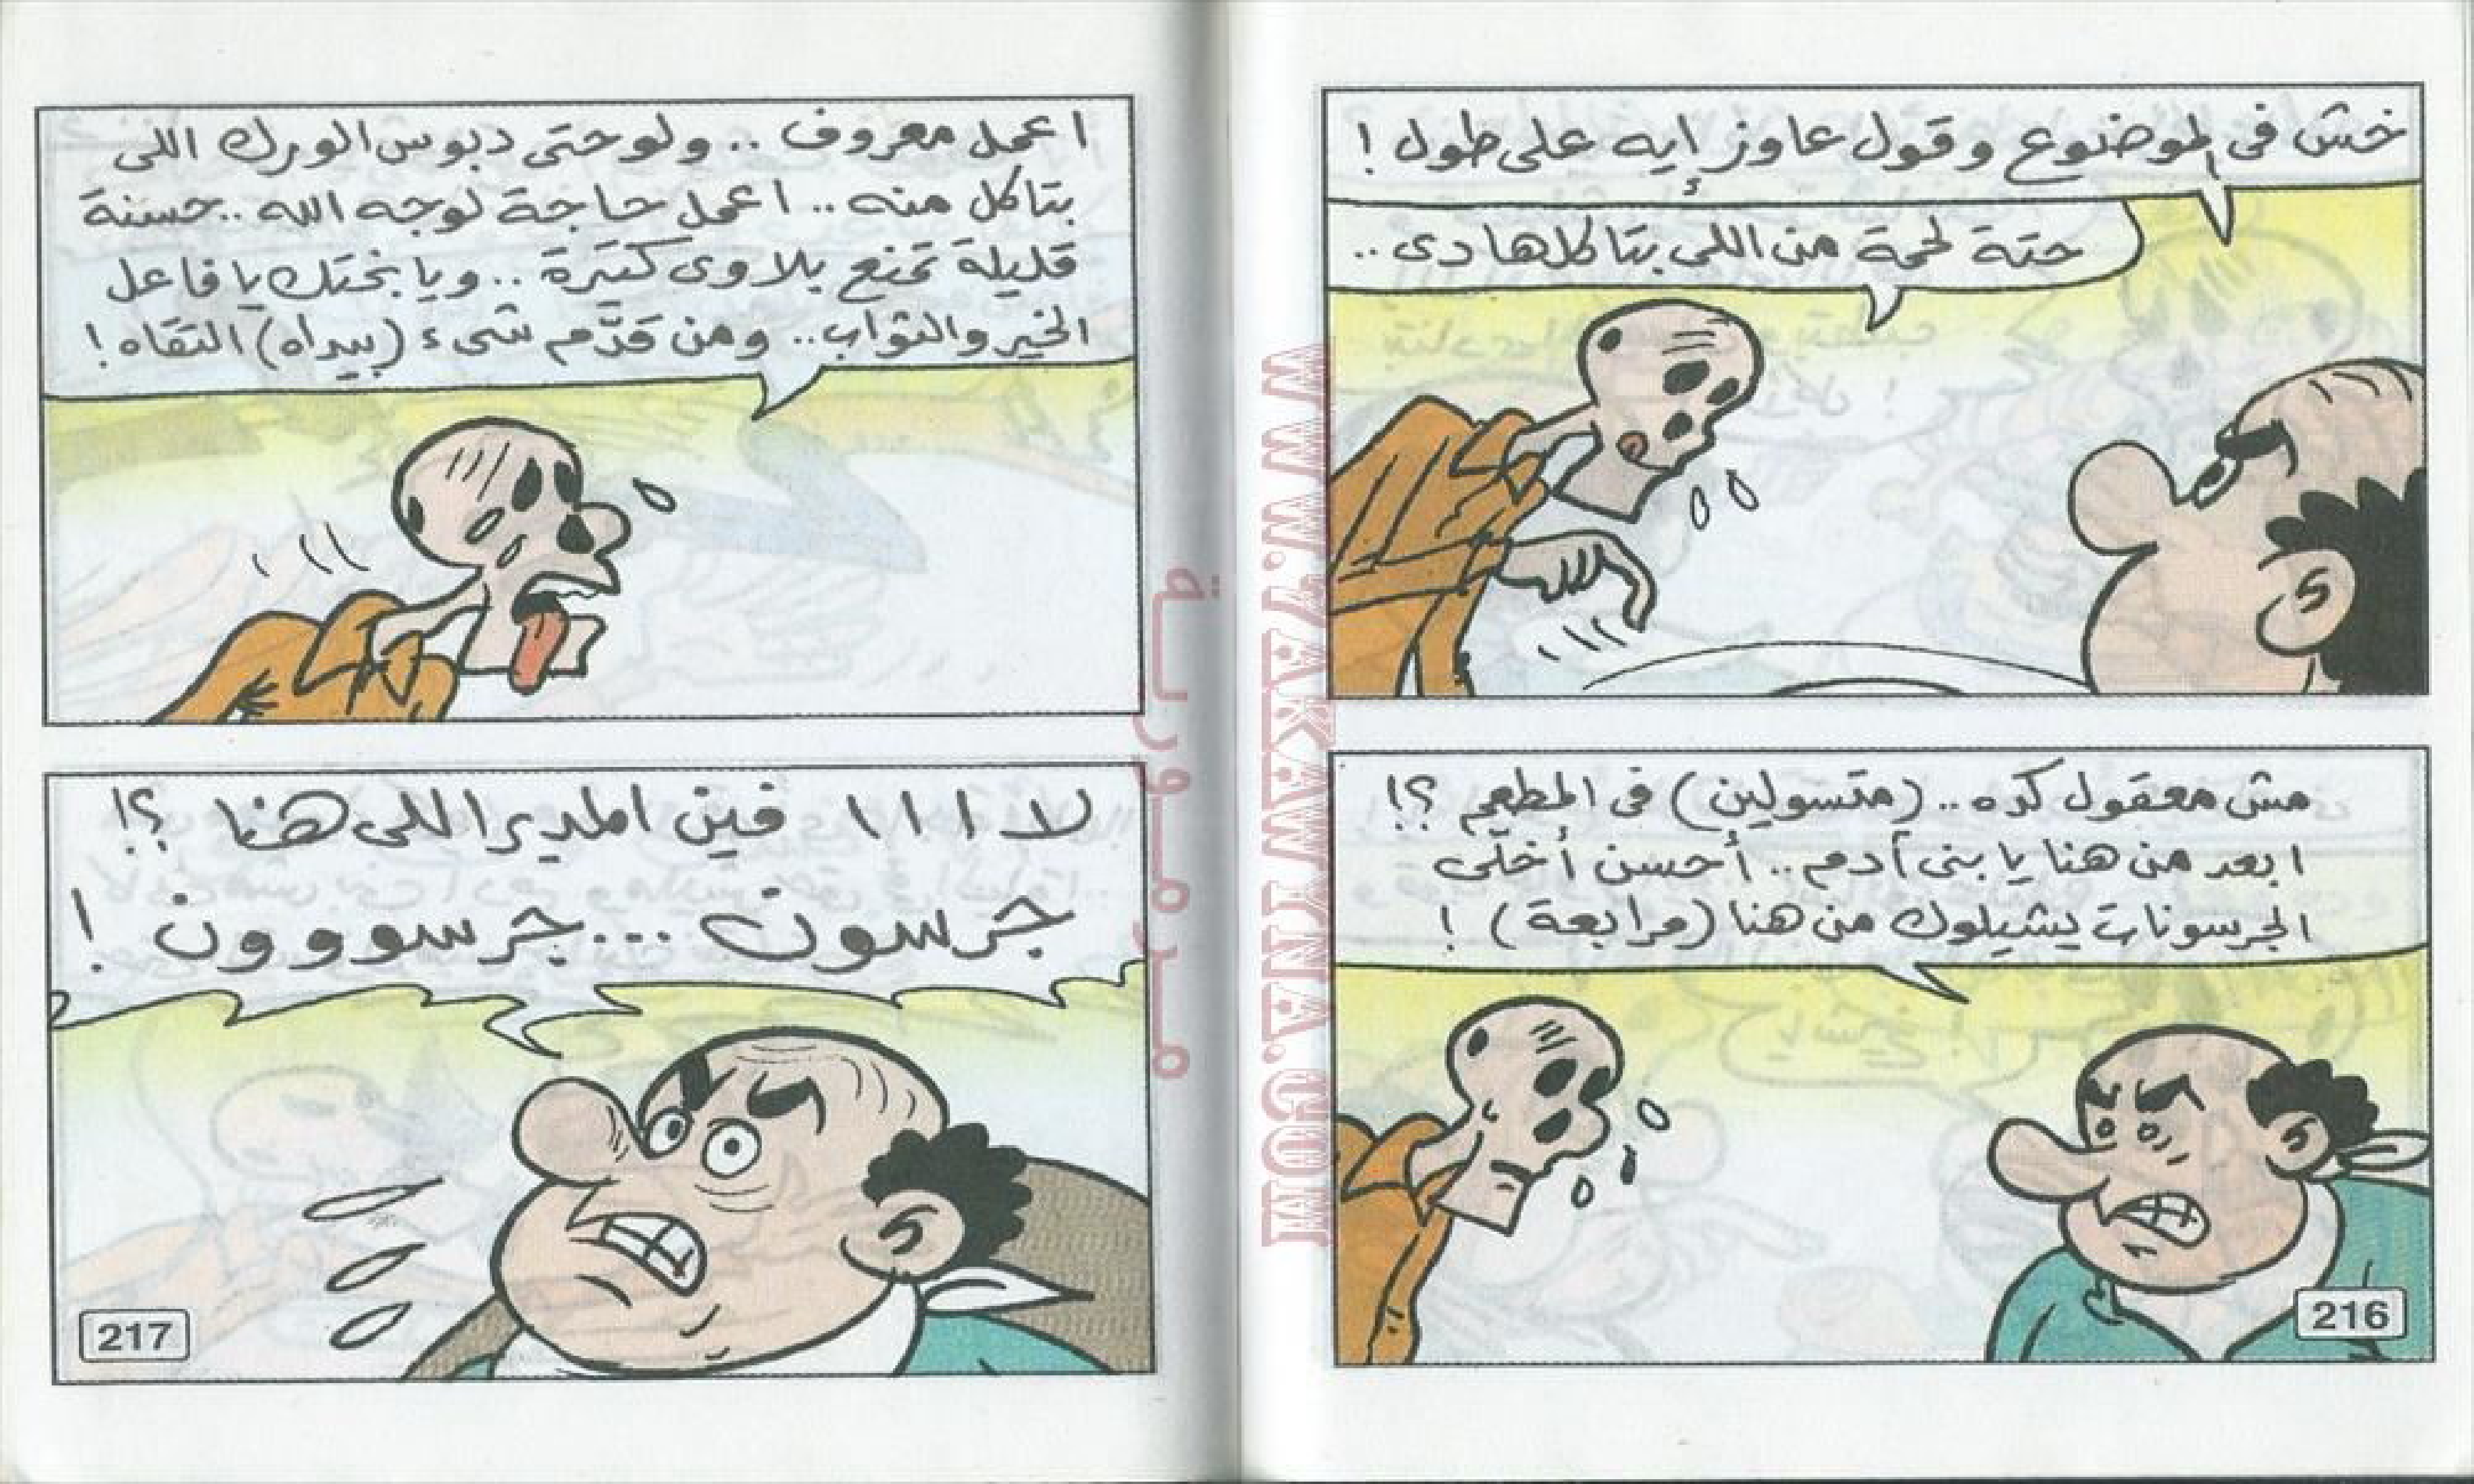 خش فى الموضوع وقول عاوز إيه على طول !
حتة لحمة من اللى بتاكلها دى ..
مش معقول كده .. (متسولين) فى المطعم ؟!
ابعد من هنا يا بنى آدم .. أحسن أخلّى
الجرسونات يشيلوك من هنا (مرابعة) !
216
اعمل معروف .. ولو حتى دبوس الورك اللى
بتاكل منه .. اعمل حاجة لوجه الله .. حسنة
قليلة تمنع بلاوى كتيرة .. ويا بختك يا فاعل
الخير والثواب .. ومن قدَّم شىء (بيداه) التقاه !
لا ا ا ا فين المدير اللى هنا ؟!
جرسون ... جرسووون !
217